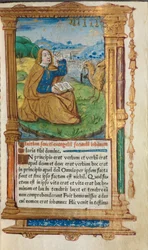 Initium sancti euangelii secundum iohannem
Gloria tibi domine.
In principio erat verbum et verbū erat
apud deum et deus erat verbum hoc erat
in principio apud deū Omnia per ipsum facta
sunt et sine ipso factum est nichil. Quod fac
tum est in ipso vita erat et vita erat lux ho
minum et lux in tenebris lucet et tenebre
eam non comprehenderunt Fuit homo missus a deo
cui nomen erat iohannes Hic venit in testimo